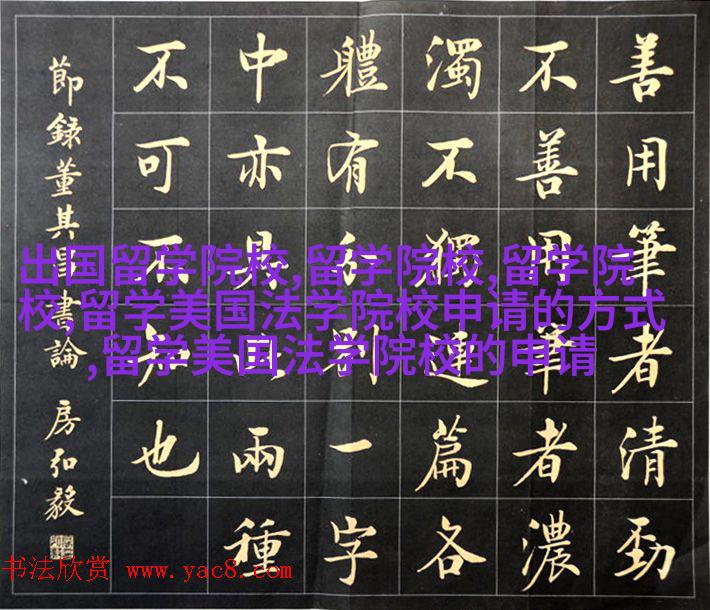 善用筆者清勁
不善用筆者濃
濁不獨連篇各
體有分別一字
中亦具此兩種
不可不知也
節録董其昌書論 房弘毅
出国留学院校,留学院校,留学院
校,留学美国法学院校申请的方式
,留学美国法学院校的申请
书法欣赏 www.yac8.com